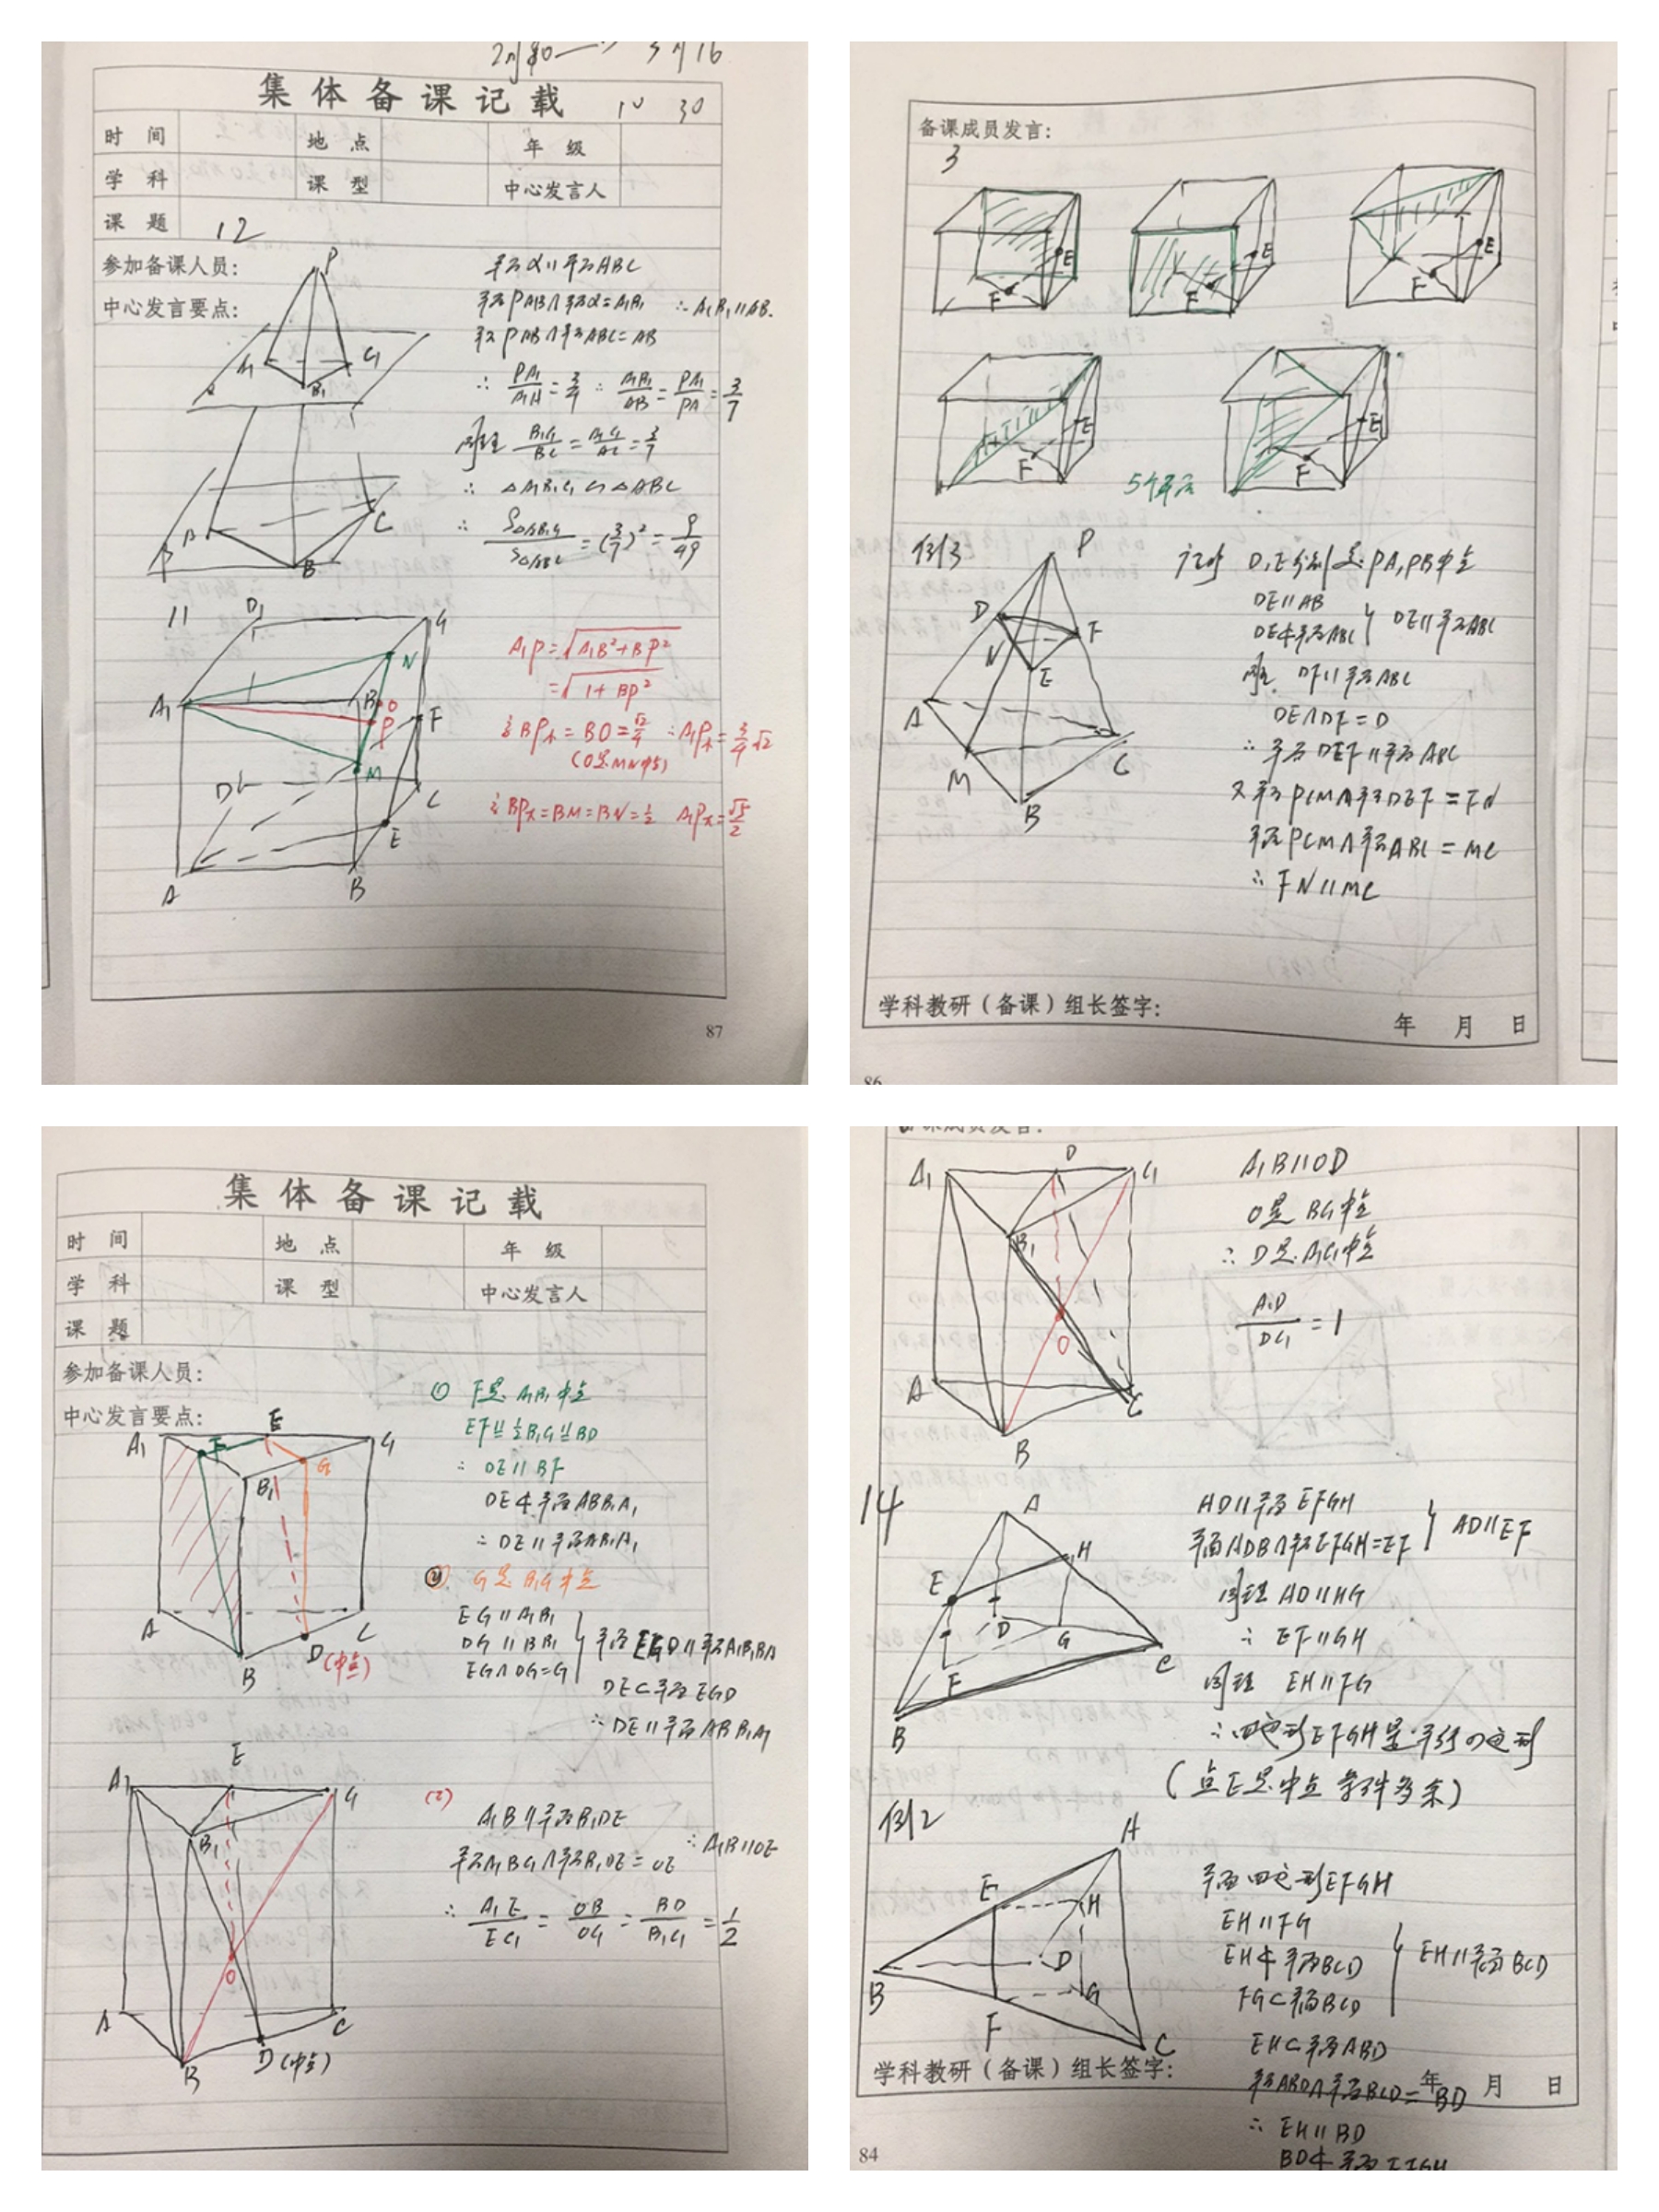 集体备课记载
10 30
时间 地点 年级
学科 课型 中心发言人
课题
12
参加备课人员：
中心发言要点：
P
A₁ C₁
B₁
α
A C
B
β
平面α∥平面ABC
平面PAB∩平面α=A₁B₁ ∴A₁B₁∥AB.
平面PAB∩平面ABC=AB
∴ PA₁/A₁A=3/4 ∴ A₁B₁/AB=PA₁/PA=3/7
同理 B₁C₁/BC=A₁C₁/AC=3/7
∴ △A₁B₁C₁∽△ABC
∴ S△A₁B₁C₁/S△ABC=(3/7)²=9/49
11
D₁ C₁
N
A₁ B₁ O
P F
M
D C
E
A B
A₁P=√A₁B²+BP²
=√1+BP²
BP小=BO=√2/4 ∴A₁P小=3/4√2
(O是MN中点)
BP大=BM=BN=1/2 A₁P大=√5/2
87
备课成员发言：
3
E
F
E
F
E
F
E
F
E
F
5个平面
例3
P
D F
N E
A
C
M
B
证明 D,E分别是PA,PB中点
DE∥AB
DE⊄平面ABC } DE∥平面ABC
同理 DF∥平面ABC
DE∩DF=D
∴平面DEF∥平面ABC
又平面PCM∩平面DEF=FN
平面PCM∩平面ABC=MC
∴FN∥MC
学科教研（备课）组长签字：
年 月 日
86
集体备课记载
时间 地点 年级
学科 课型 中心发言人
课题
参加备课人员：
中心发言要点：
A₁ E C₁
F G
B₁
A C
B D(中点)
① F是A₁B₁中点
EF∥=1/2B₁C₁∥=BD
∴ DE∥BF
DE⊄平面ABB₁A₁
∴DE∥平面ABB₁A₁
② G是B₁C₁中点
EG∥A₁B₁
DG∥BB₁ } 平面EGD∥平面A₁B₁BA
EG∩DG=G
DE⊂平面EGD
∴DE∥平面ABB₁A₁
E
A₁ C₁
B₁
O
A C
B D(中点)
(2)
A₁B∥平面B₁DE
平面A₁BC₁∩平面B₁DE=OE ∴A₁B∥OE
∴ A₁E/EC₁=OB/OC₁=BD/B₁C₁=1/2
备课成员发言：
A₁ D C₁
B₁
O
A C
B
A₁B∥OD
O是BC₁中点
∴D是A₁C₁中点
A₁D/DC₁=1
14
A
E H
D G
F C
B
AD∥平面EFGH
平面ADB∩平面EFGH=EF } AD∥EF
同理AD∥HG
∴EF∥GH
同理 EH∥FG
∴四边形EFGH是平行四边形
(点E是中点 条件多余)
例2
A
E H
B D
F G
C
平面四边形EFGH
EH∥FG
EH⊄平面BCD
FG⊂平面BCD } EH∥平面BCD
EH⊂平面ABD
平面ABD∩平面BCD=BD
∴EH∥BD
BD⊄平面EFGH
学科教研（备课）组长签字：
年 月 日
84